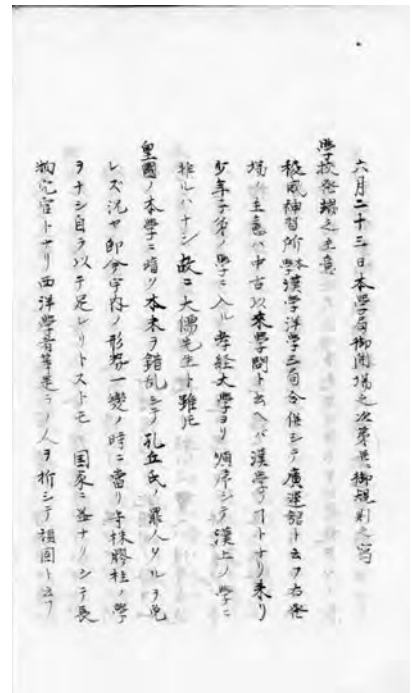 六月二十三日本學局御開場之次第並御規則之寫
學校発端之主意
稜威神習所本學漢学洋学三局合併シテ廣運舘ト云フ右発
端ノ主意ハ中古以来學問ト云ヘバ漢學ノコトナリ来リ
少年子弟ノ學ニ入ル孝経大學ヨリ順序シテ漢土ノ學ニ
非ルハナシ故ニ大儒先生ト雖圧
皇國ノ本學ニ暗ク本末ヲ錯乱シテ孔丘氏ノ罪人タルヲ免
レズ況ヤ即今宇内ノ形勢一變ノ時ニ當リ守株膠柱ノ學
ヲナシ自ラ以テ足レリトストモ國家ニ益ナクシテ長
物冗官トナリ西洋學者等是ラノ人ヲ指シテ